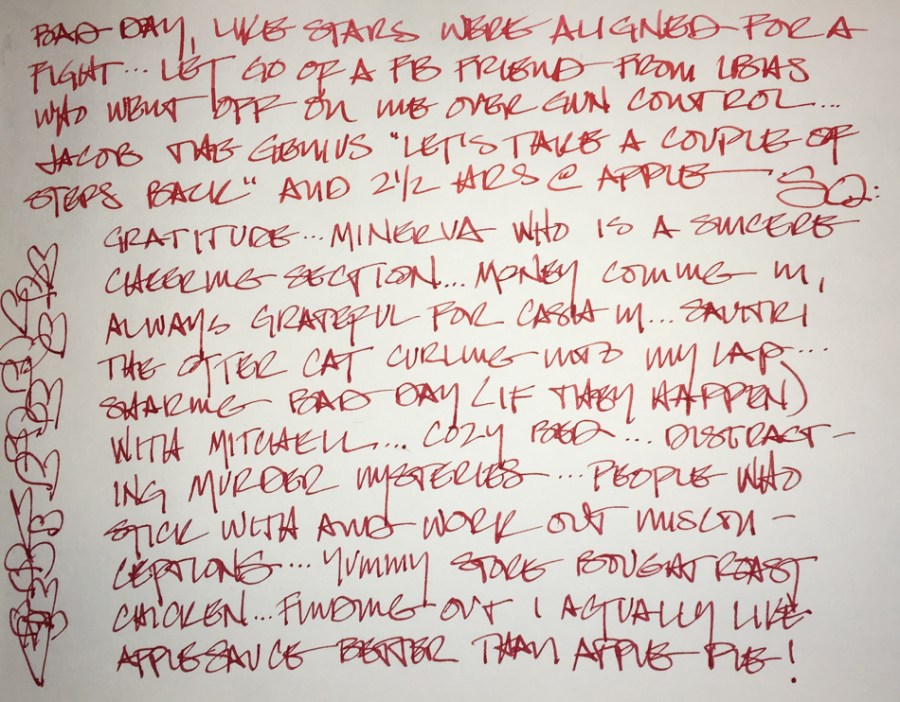 BAD DAY, LIKE STARS WERE ALIGNED FOR A
FIGHT... LET GO OF A FB FRIEND FROM
WHO WENT OFF ON ME OVER GUN CONTROL...
JACOB THE GENIUS "LET'S TAKE A COUPLE OF
STEPS BACK" AND 2 1/2 HRS @ APPLE — SQ:
GRATITUDE... MINERVA WHO IS A SINCERE
CHEERING SECTION... MONEY COMING IN,
ALWAYS GRATEFUL FOR CASH IN... SAVITRI
THE OTTER CAT CURLING INTO MY LAP...
SHARING BAD DAY (IF THEY HAPPEN)
WITH MITCHELL... COZY BED... DISTRACT-
ING MURDER MYSTERIES... PEOPLE WHO
STICK WITH AND WORK OUT MISCON-
CEPTIONS... YUMMY STORE BOUGHT ROAST
CHICKEN... FINDING OUT I ACTUALLY LIKE
APPLESAUCE BETTER THAN APPLE PIE!